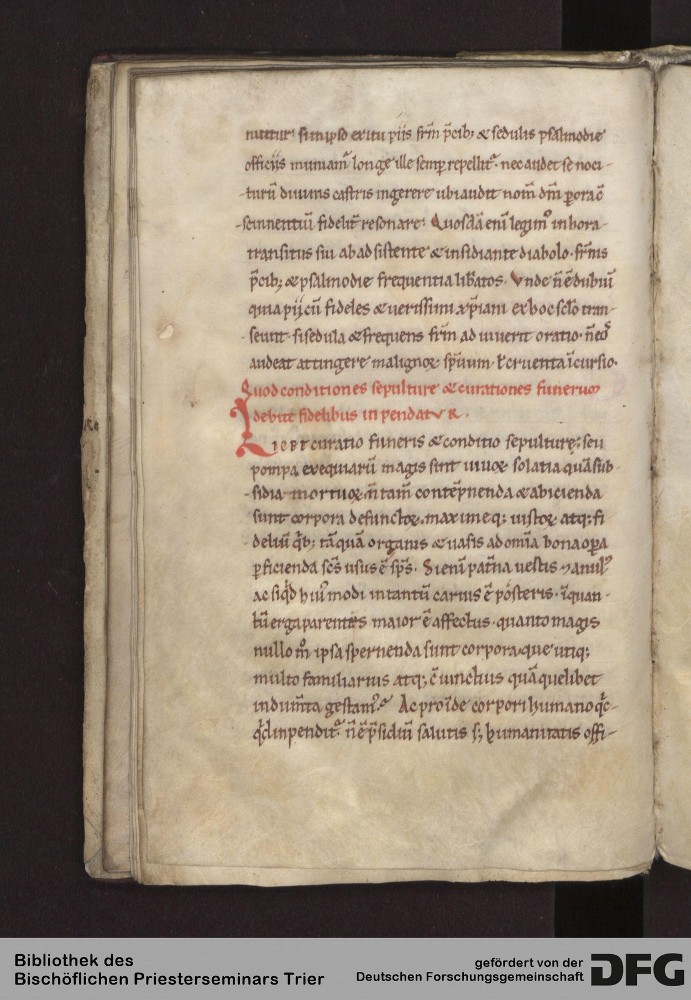 nititur. si in ipso exitu piis frm̄ p̄cib; & sedulis psalmodie
officiis muniam̄ longe ille semp repellit᷑. nec audet se noci-
turū diuinis castris ingerere ubi audit nom̄ dn̄i p ora c̄-
scinnentiū fideliť resonare. Quosdā enī legim᷒ in hora
transitus sui ab adsistente & insidiante diabolo. frm̄
p̄cib; & psalmodie frequentia libatos. Vnde n̄ ē dubiū
quia pii cū fideles & uerissimi xp̄iani ex hoc sclo tran-
seunt. si sedula & frequens frm̄ adiuuerit oratio. n̄ eos
audeat attingere malignoꝝ spirituum cruenta īcursio.
Quod conditiones sepulture & curationes funerum
debite fidelibus inpendatur.
Licet curatio funeris & conditio sepulture; seu
pompa exequiarū magis sint uiuoꝝ solatia quā sub-
sidia mortuoꝝ, n̄ tam̄ contēpnenda & abicienda
sunt corpora defunctoꝝ. maximeq; iustoꝝ atq; fi
deliū q̄b; tāquā organis & uasis ad om̄ia bona opa
pficienda sc̄s usus ē sp̄s. Si enī pat̄na uestis & anul᷒
ac siq̄d hui᷒modi in tantū carius ē posteris. īquan-
tū erga parentes maior ē affectus. quanto magis
nullo m̊ ipsa spernenda sunt corpora. que utiq;
multo familiarius atq; c̄iunctius quā quelibet
indum̄ta gestam᷒. Ac proīde corpori humano q̄c-
q̄d inpendit᷑. n̄ ē p̄sidiū salutis s; humanitatis offi-
Bibliothek des
Bischöflichen Priesterseminars Trier
gefördert von der
Deutschen Forschungsgemeinschaft
DFG